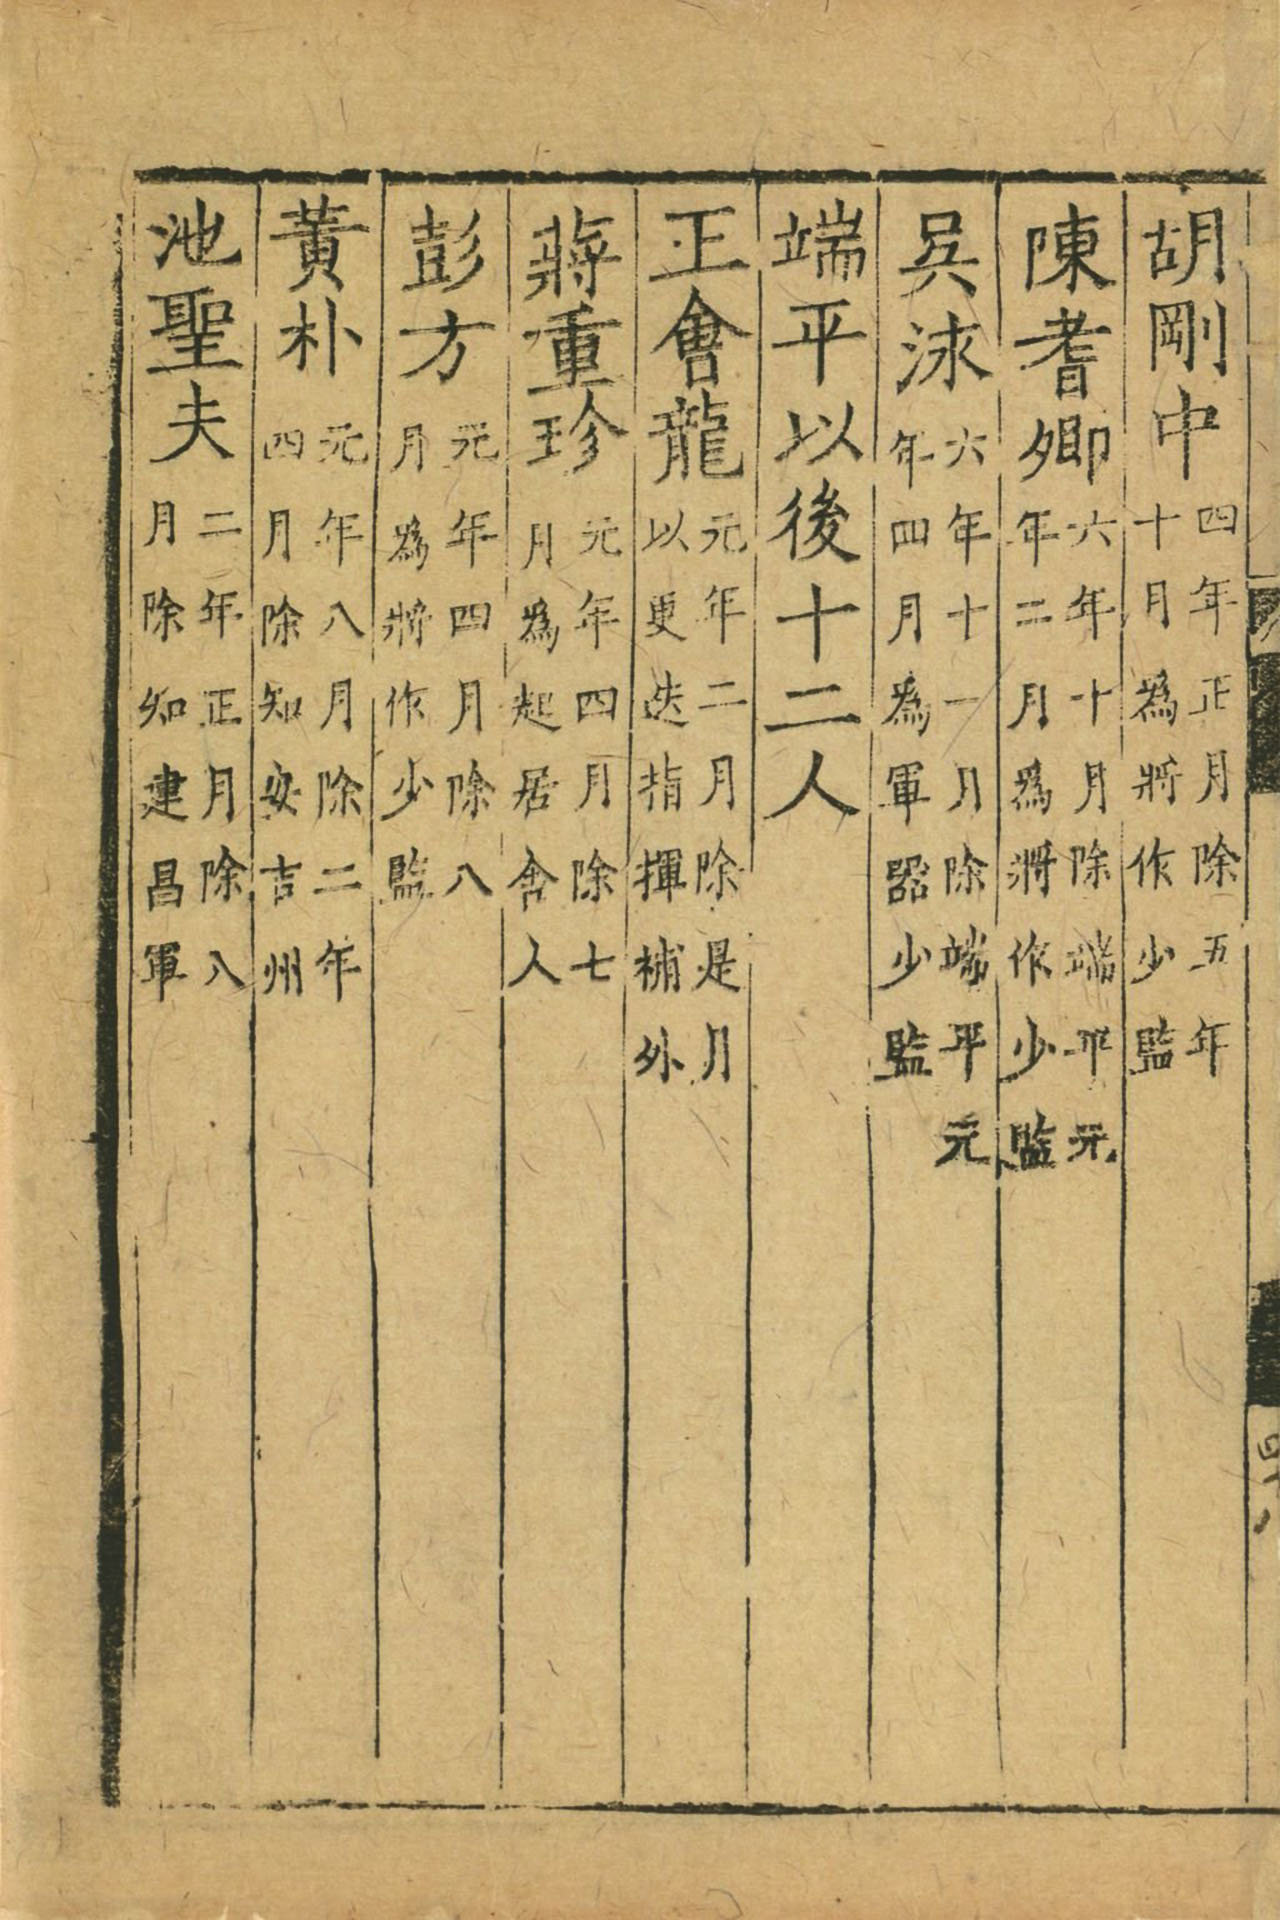 胡剛中四年正月除五年十月為將作少監
陳耆卿六年十月除端平元年二月為將作少監
吳泳六年十一月除端平元年四月為軍器少監
端平以後十二人
王會龍元年二月除是月以更迭指揮補外
蔣重珍元年四月除七月為起居舍人
彭方元年四月除八月為將作少監
黃朴元年八月除二年四月除知安吉州
池聖夫二年正月除八月除知建昌軍